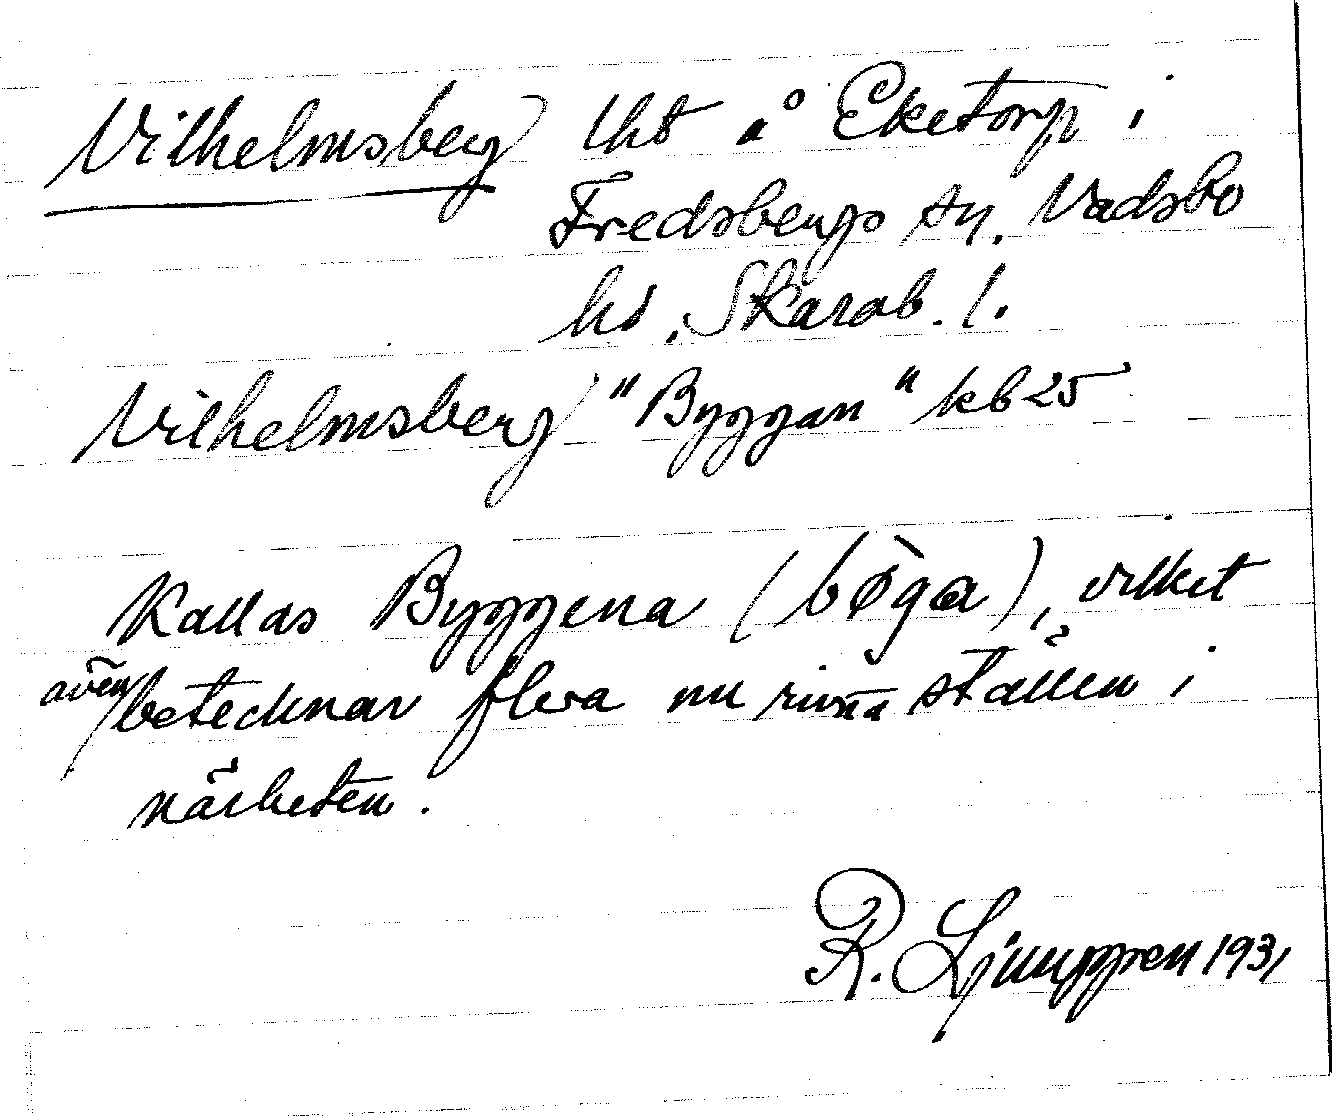 Vilhelmsberg lht å Eketorp i
Fredsbergs sn. Vadsbo
hd, Skarab. l.
Vilhelmsberg "Byggan" kb 25
Kallas Byggena (bø̀ga), vilket
även betecknar flera nu rivna ställen i
närheten.
R. Ljunggren 1931